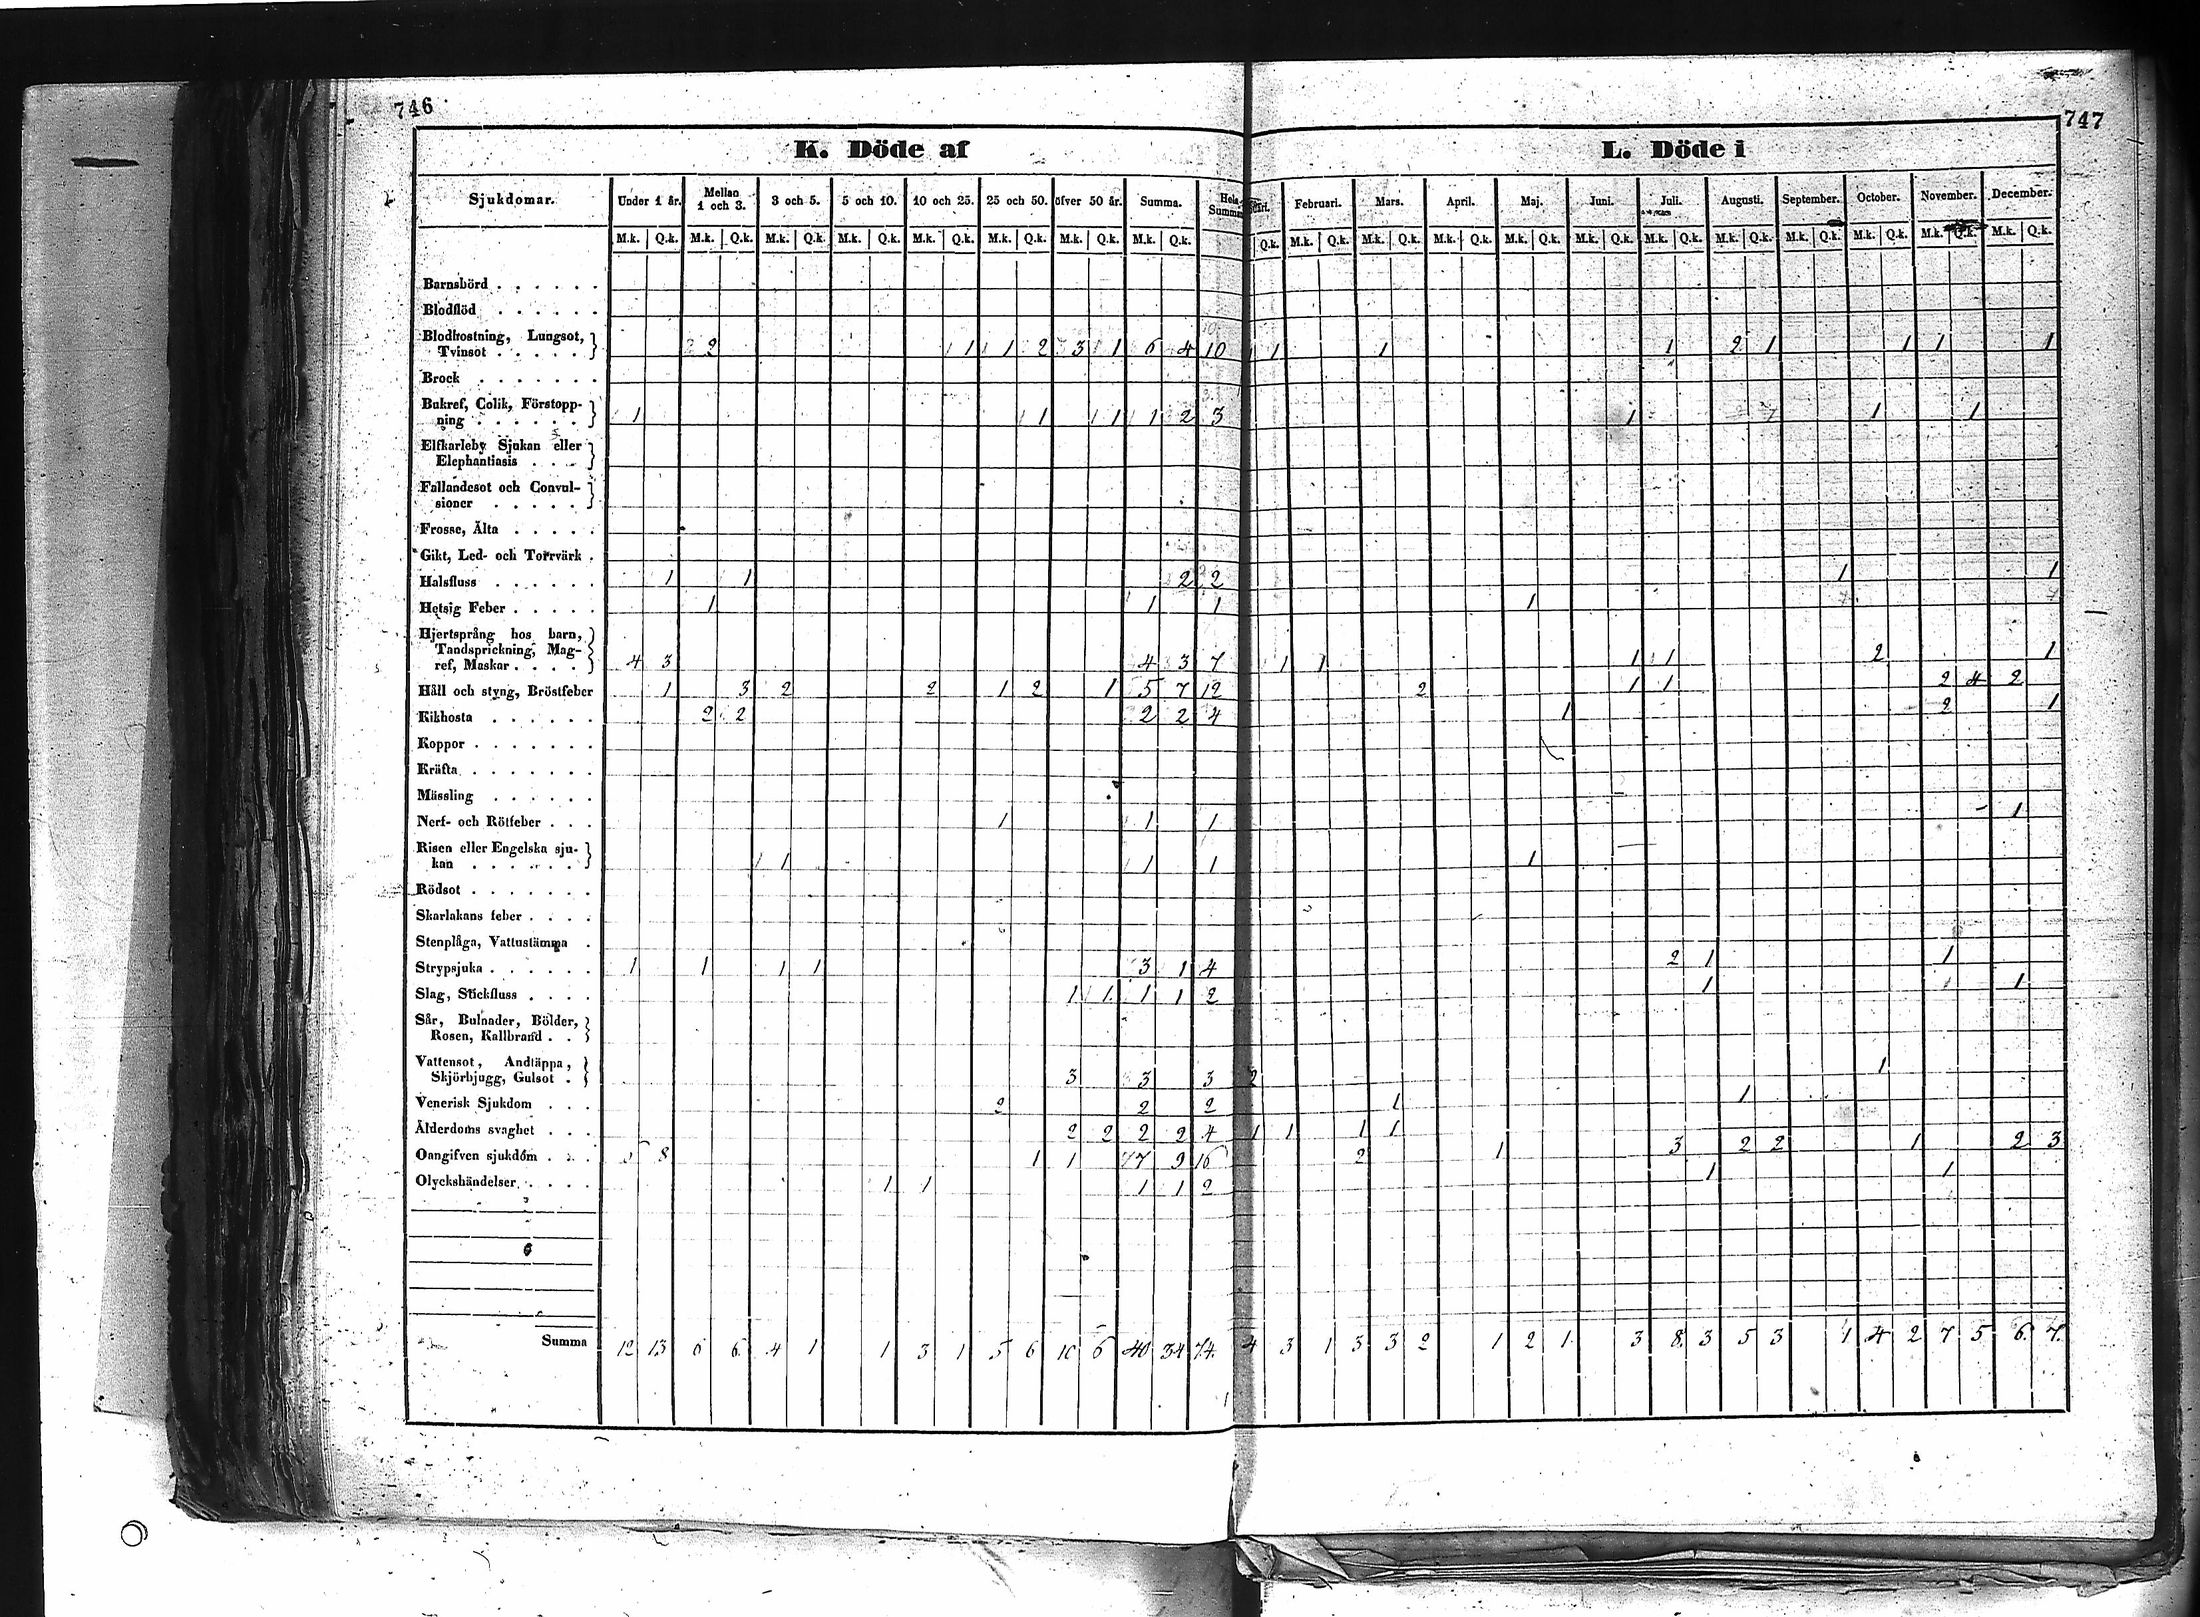 746
747
K. Döde af
L. Döde i
Sjukdomar. Under 1 år. Mellan 1 och 3. 3 och 5. 5 och 10. 10 och 25. 25 och 50. öfver 50 år. Summa. Hela Summan Februari. Mars. April. Maj. Juni. Juli. Augusti. September. October. November. December.
M.k. Q.k. M.k. Q.k. M.k. Q.k. M.k. Q.k. M.k. Q.k. M.k. Q.k. M.k. Q.k. M.k. Q.k. Q.k. M.k. Q.k. M.k. Q.k. M.k. Q.k. M.k. Q.k. M.k. Q.k. M.k. Q.k. M.k. Q.k. M.k. Q.k. M.k. Q.k. M.k. Q.k. M.k. Q.k.
Barnsbörd
Blodflöd
Blodhostning, Lungsot,
Tvinsot 2 1 1 2 3 1 6 4 10 1 1 1 1 2 1 1 1 1
Brock
Bukref, Colik, Förstopp-
ning 1 1 1 1 2 3 1 1 1
Elfkarleby Sjukan eller
Elephantiasis
Fallandesot och Convul-
sioner
Frosse, Älta
Gikt, Led- och Torrvärk
Halsfluss 1 1 2 2 1 1
Hetsig Feber 1 1 1 1
Hjertsprång hos barn,
Tandsprickning, Mag-
ref, Maskar 4 3 4 3 7 1 1 1 1 2 1
Håll och styng, Bröstfeber 1 3 2 2 1 2 1 5 7 12 2 1 1 2 4 2
Kikhosta 2 2 2 2 4 1 2 1
Koppor
Kräfta
Mässling
Nerf- och Rötfeber 1 1 1 1
Risen eller Engelska sju-
kan 1 1 1 1
Rödsot
Skarlakans feber
Stenplåga, Vattustämma
Strypsjuka 1 1 1 1 3 1 4 2 1 1
Slag, Stickfluss 1 1 1 1 2 1 1
Sår, Bulnader, Bölder,
Rosen, Kallbrand
Vattensot, Andtäppa,
Skjörbjugg, Gulsot 3 3 3 2 1
Venerisk Sjukdom 2 2 2 1 1
Ålderdoms svaghet 2 2 2 2 4 1 1 1 1
Oangifven sjukdom 5 8 1 1 7 9 16 2 1 3 2 2 1 2 3
Olyckshändelser 1 1 1 1 2 1 1
Summa 12 13 6 6 4 1 1 3 1 5 6 10 6 40 34 74 4 3 1 3 3 2 1 2 1 3 8 3 5 3 1 4 2 7 5 6 7